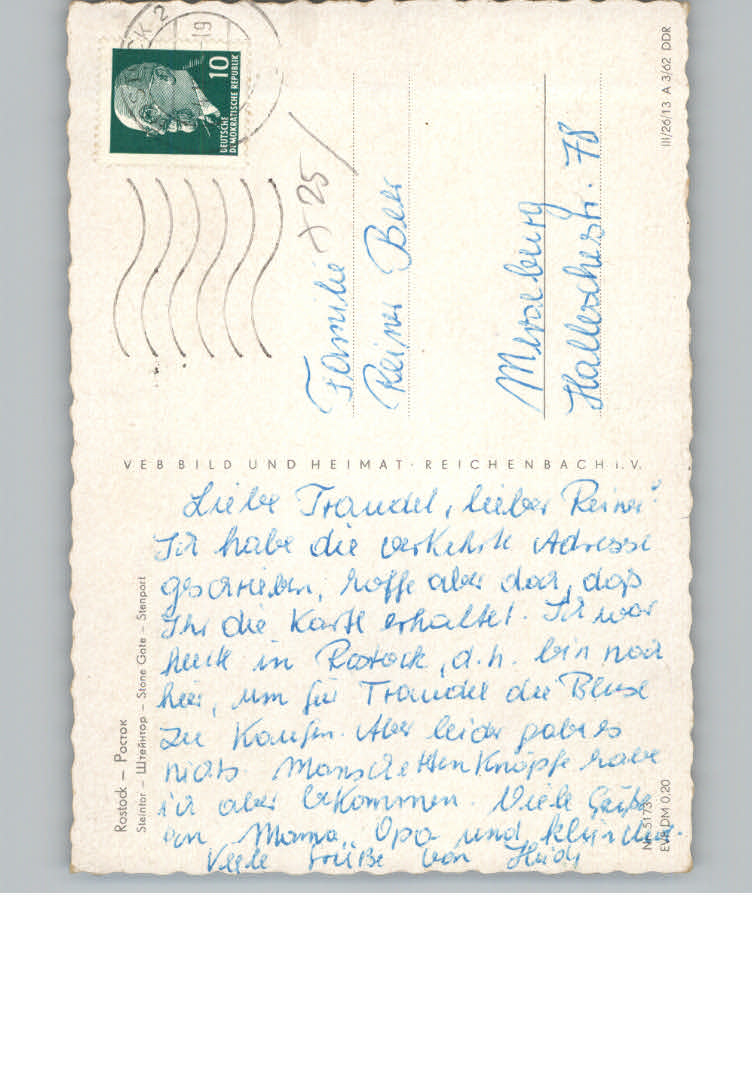 Rostock – Росток
Steintor – Штейнтор – Stone Gate – Stenport
Liebe Traudel, lieber Reiner!
Ich habe die verkehrte Adresse
geschrieben, hoffe aber doch, daß
Ihr die Karte erhaltet. Ich war
heute in Rostock, d.h. bin noch
hier, um für Traudel die Bluse
zu kaufen. Aber leider gab es
nichts. Manschettenknöpfe habe
ich aber bekommen. Viele Grüße
an Mama, Opa und
Viele Grüße von Heidi
Nr. 5173
EVP DM 0,20
VEB BILD UND HEIMAT · REICHENBACH i. V.
10
DEUTSCHE
DEMOKRATISCHE REPUBLIK
19
2
25
Familie
Reiner Beer
Merseburg
Hallesche str. 78
III/26/13 A 3/62 DDR